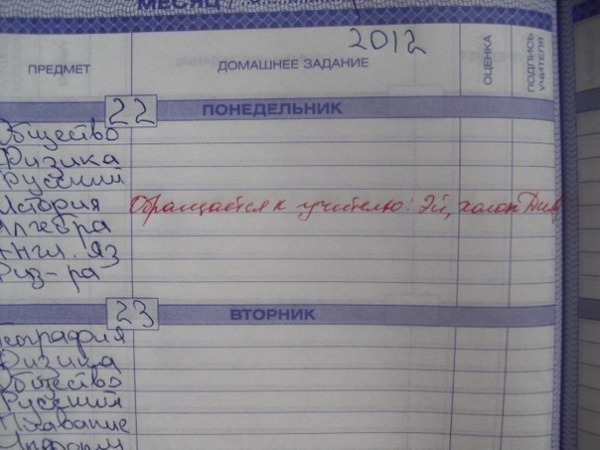 МЕСЯЦ
2012
ПРЕДМЕТ
ДОМАШНЕЕ ЗАДАНИЕ
ОЦЕНКА
ПОДПИСЬ УЧИТЕЛЯ
22 ПОНЕДЕЛЬНИК
Общество
Физика
Русский
История Обращается к учителю: Эй, холоп
Алгебра
Англ. Яз
Физ-ра
23 ВТОРНИК
География
Физика
Общество
Русский
Плавание
Информ